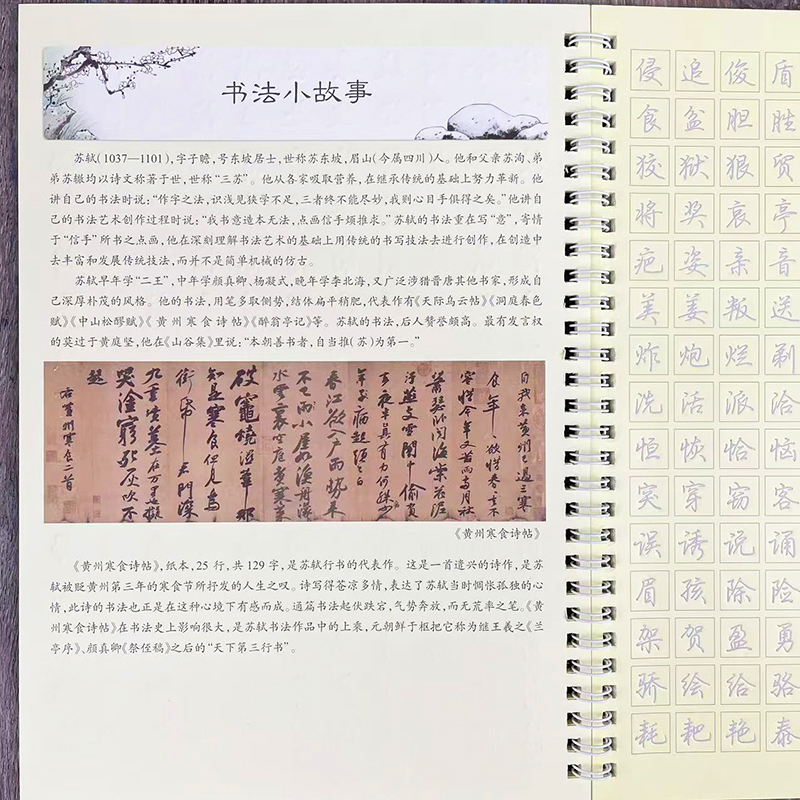 书法小故事
苏轼(1037—1101),字子瞻,号东坡居士,世称苏东坡,眉山(今属四川)人。他和父亲苏洵、弟
弟苏辙均以诗文称著于世,世称“三苏”。他从各家吸取营养,在继承传统的基础上努力革新。他
讲自己的书法时说:“作字之法,识浅见狭学不足,三者终不能尽妙,我则心目手俱得之矣。”他讲自
己的书法艺术创作过程时说:“我书意造本无法,点画信手烦推求。”苏轼的书法重在写“意”,寄情
于“信手”所书之点画,他在深刻理解书法艺术的基础上用传统的书写技法去进行创作,在创造中
去丰富和发展传统技法,而并不是简单机械的仿古。
苏轼早年学“二王”,中年学颜真卿、杨凝式,晚年学李北海,又广泛涉猎晋唐其他书家,形成自
己深厚朴茂的风格。他的书法,用笔多取侧势,结体扁平稍肥,代表作有《天际乌云帖》《洞庭春色
赋》《中山松醪赋》《黄州寒食诗帖》《醉翁亭记》等。苏轼的书法,后人赞誉颇高。最有发言权
的莫过于黄庭坚,他在《山谷集》里说:“本朝善书者,自当推(苏)为第一。”
自我来黄州已过三寒
食年年欲惜春春去不
容惜今年又苦雨两月秋
萧瑟卧闻海棠花泥
污燕支雪闇中偷负
去夜半真有力何殊少
年子病起须已白
春江欲入户雨势来
不已雨小屋如渔舟濛濛
水云里空庖煮寒菜
破灶烧湿苇那
知是寒食但见乌
衔纸君门深
九重坟墓在万里也拟
哭途穷死灰吹不
起
右黄州寒食二首
《黄州寒食诗帖》
《黄州寒食诗帖》,纸本,25行,共129字,是苏轼行书的代表作。这是一首遣兴的诗作,是苏
轼被贬黄州第三年的寒食节所抒发的人生之叹。诗写得苍凉多情,表达了苏轼当时惆怅孤独的心
情,此诗的书法也正是在这种心境下有感而成。通篇书法起伏跌宕,气势奔放,而无荒率之笔。《黄
州寒食诗帖》在书法史上影响很大,是苏轼书法作品中的上乘,元朝鲜于枢把它称为继王羲之《兰
亭序》、颜真卿《祭侄稿》之后的“天下第三行书”。
侵追俊盾
食盆胆胜
狡狱狠贸
将奖哀亭
疤姿亲音
美姜叛送
炸炮烂剃
洗活派洽
恒恢恰恼
突穿窃客
误诱说诵
眉孩除险
架贺盈勇
骄绘给骆
耗耙艳泰